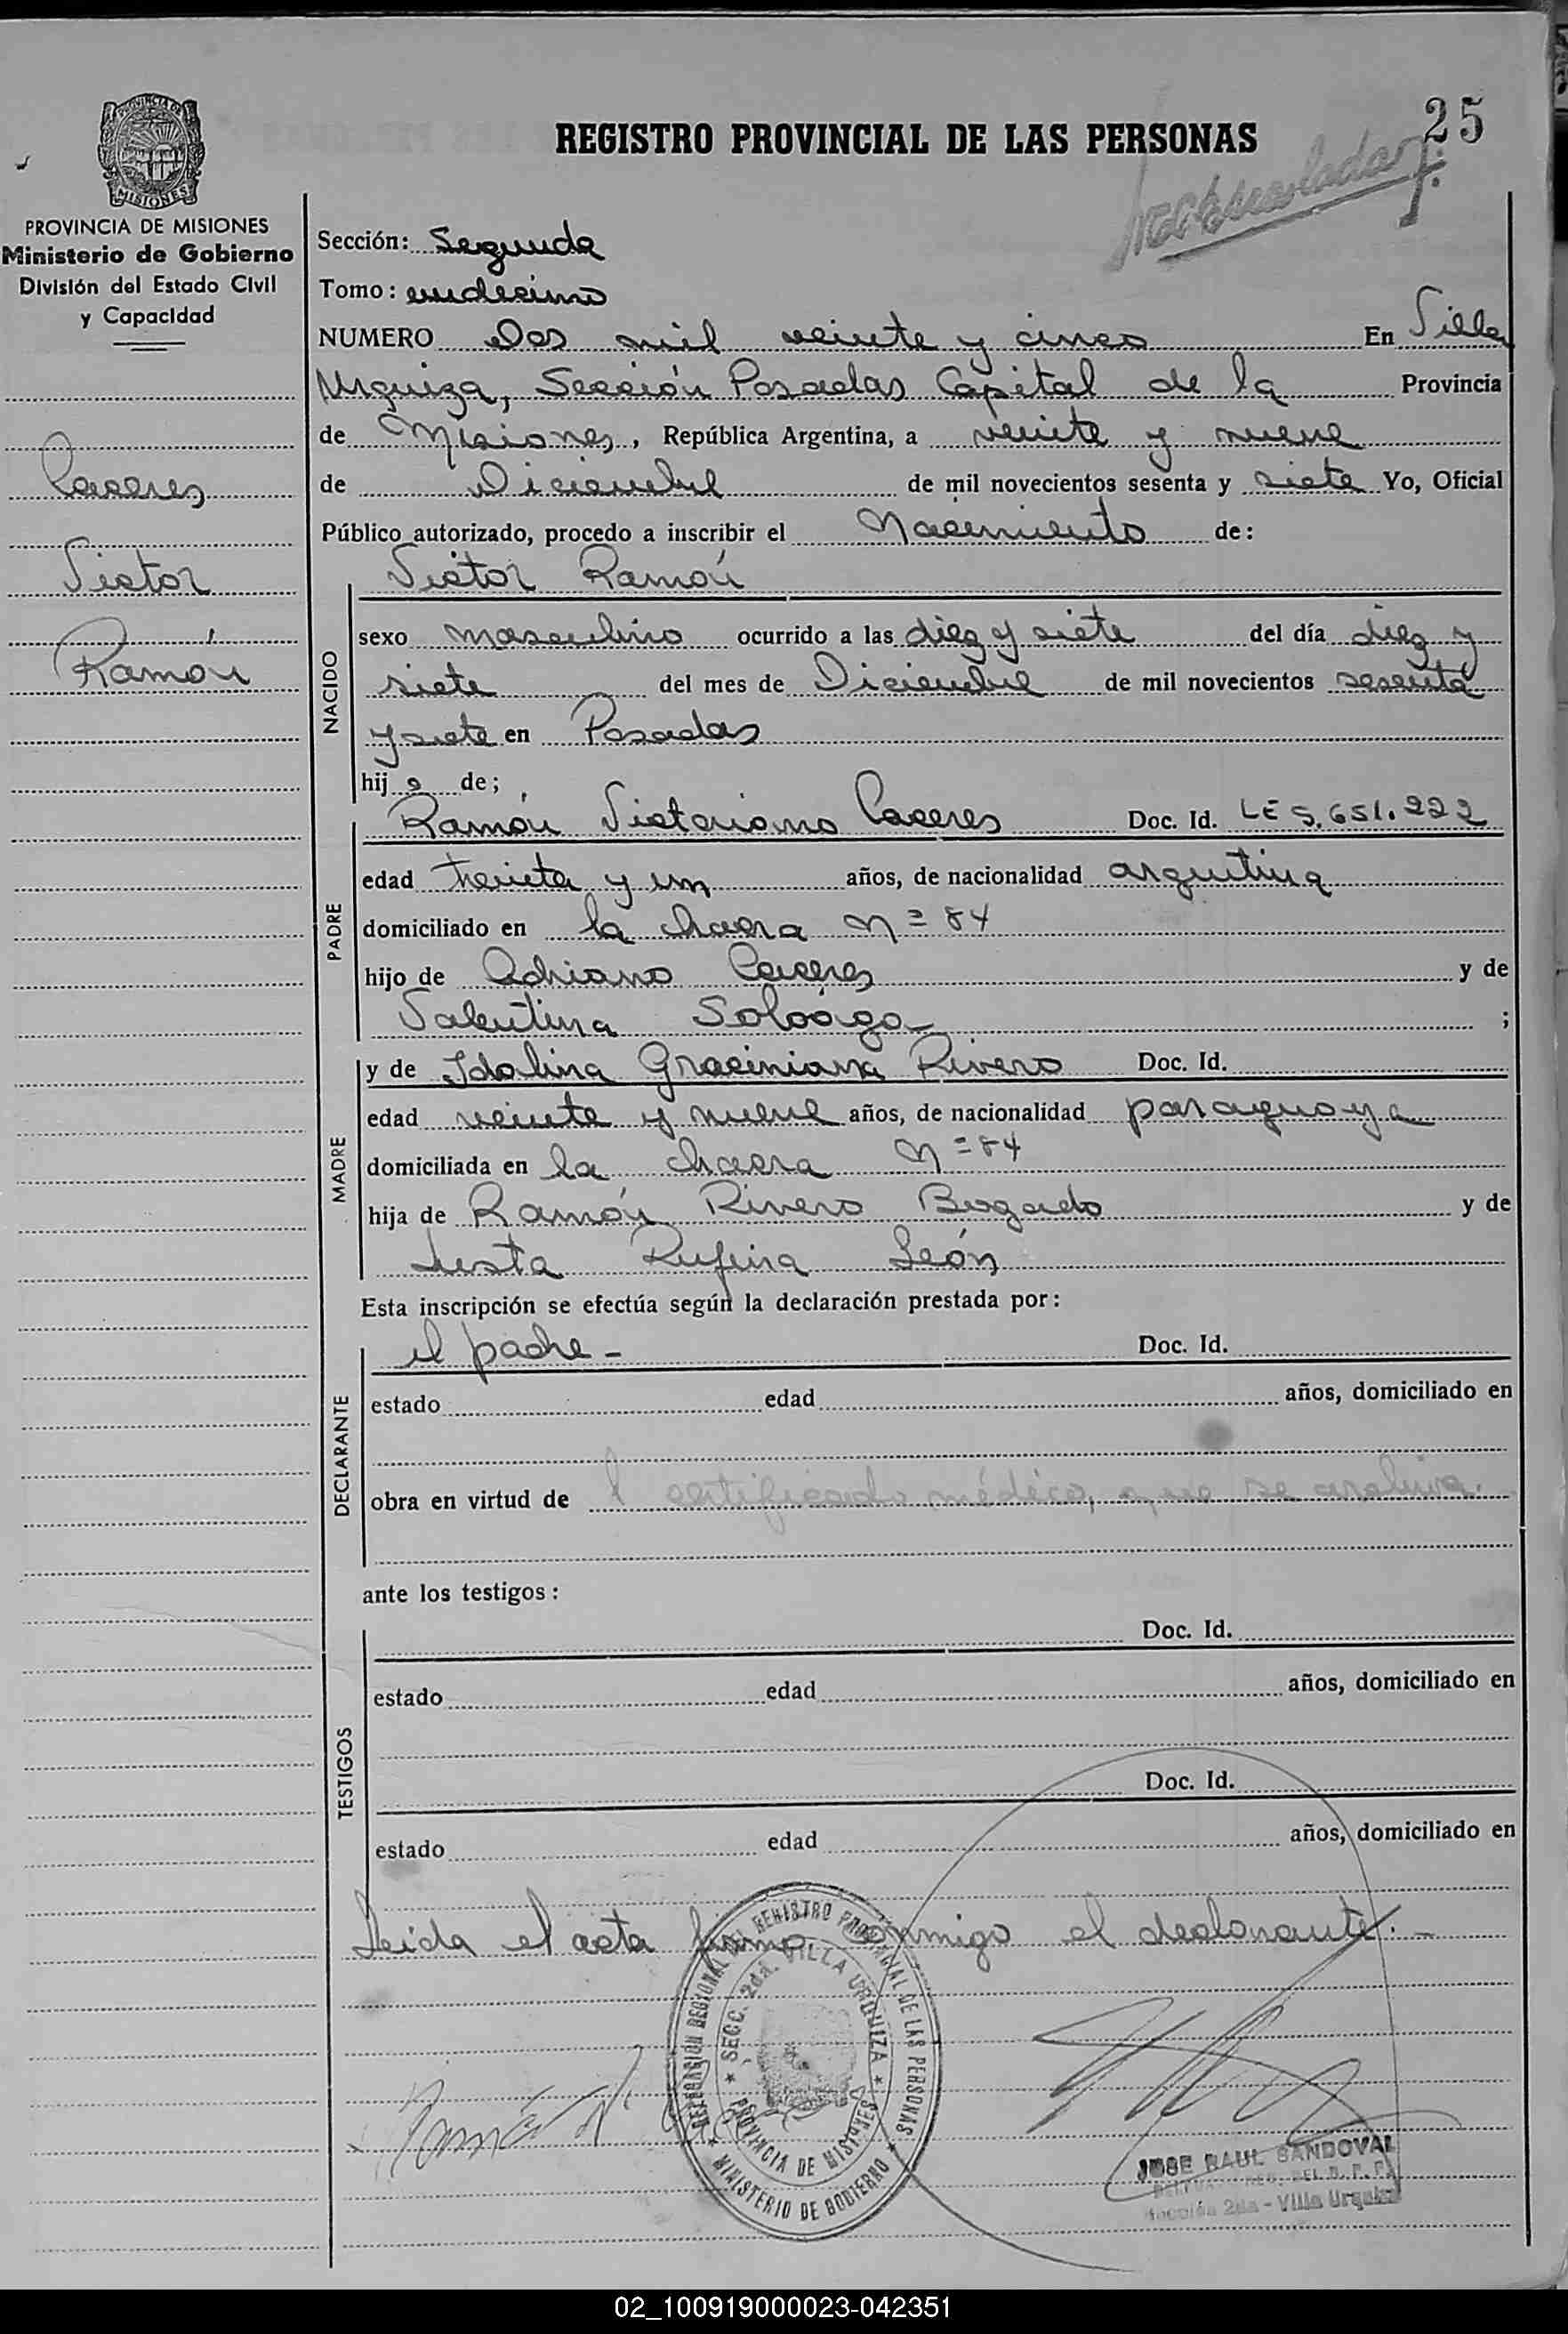 25
REGISTRO PROVINCIAL DE LAS PERSONAS
PROVINCIA DE MISIONES
MISIONES
PROVINCIA DE MISIONES
Ministerio de Gobierno
División del Estado Civil
y Capacidad
Caceres
Victor
Ramón
Sección: Segunda
Tomo: undecimo
NUMERO Dos mil veinte y cinco En Villa
Urquiza, Sección Posadas Capital de la Provincia
de Misiones, República Argentina, a veinte y nueve
de Diciembre de mil novecientos sesenta y siete Yo, Oficial
Público autorizado, procedo a inscribir el Nacimiento de:
Victor Ramón
NACIDO
sexo masculino ocurrido a las diez y siete del día diez y
siete del mes de Diciembre de mil novecientos sesenta
y siete en Posadas
hijo de;
PADRE
Ramón Victoriano Caceres Doc. Id. LE 5.651.222
edad treinta y un años, de nacionalidad argentina
domiciliado en la chacra Nº 84
hijo de Adriano Caceres y de
Valentina Soloaga ;
MADRE
y de Idalina Graciniana Rivero Doc. Id.
edad veinte y nueve años, de nacionalidad paraguaya
domiciliada en la chacra Nº 84
hija de Ramón Rivero Bogado y de
Rufina León
Esta inscripción se efectúa según la declaración prestada por:
DECLARANTE
el padre - Doc. Id.
estado edad años, domiciliado en
obra en virtud de l certificado médico, que se archiva.
ante los testigos:
TESTIGOS
Doc. Id.
estado edad años, domiciliado en
Doc. Id.
estado edad años, domiciliado en
Leida el acta firma conmigo el declarante. -
DELEGACION REGIONAL DEL REGISTRO PROVINCIAL DE LAS PERSONAS
SECC. 2da. VILLA URQUIZA
PROVINCIA DE MISIONES
MINISTERIO DE GOBIERNO
Ramón
JOSE RAUL SANDOVAL
Sección 2da - Villa Urquiza
02_100919000023-042351